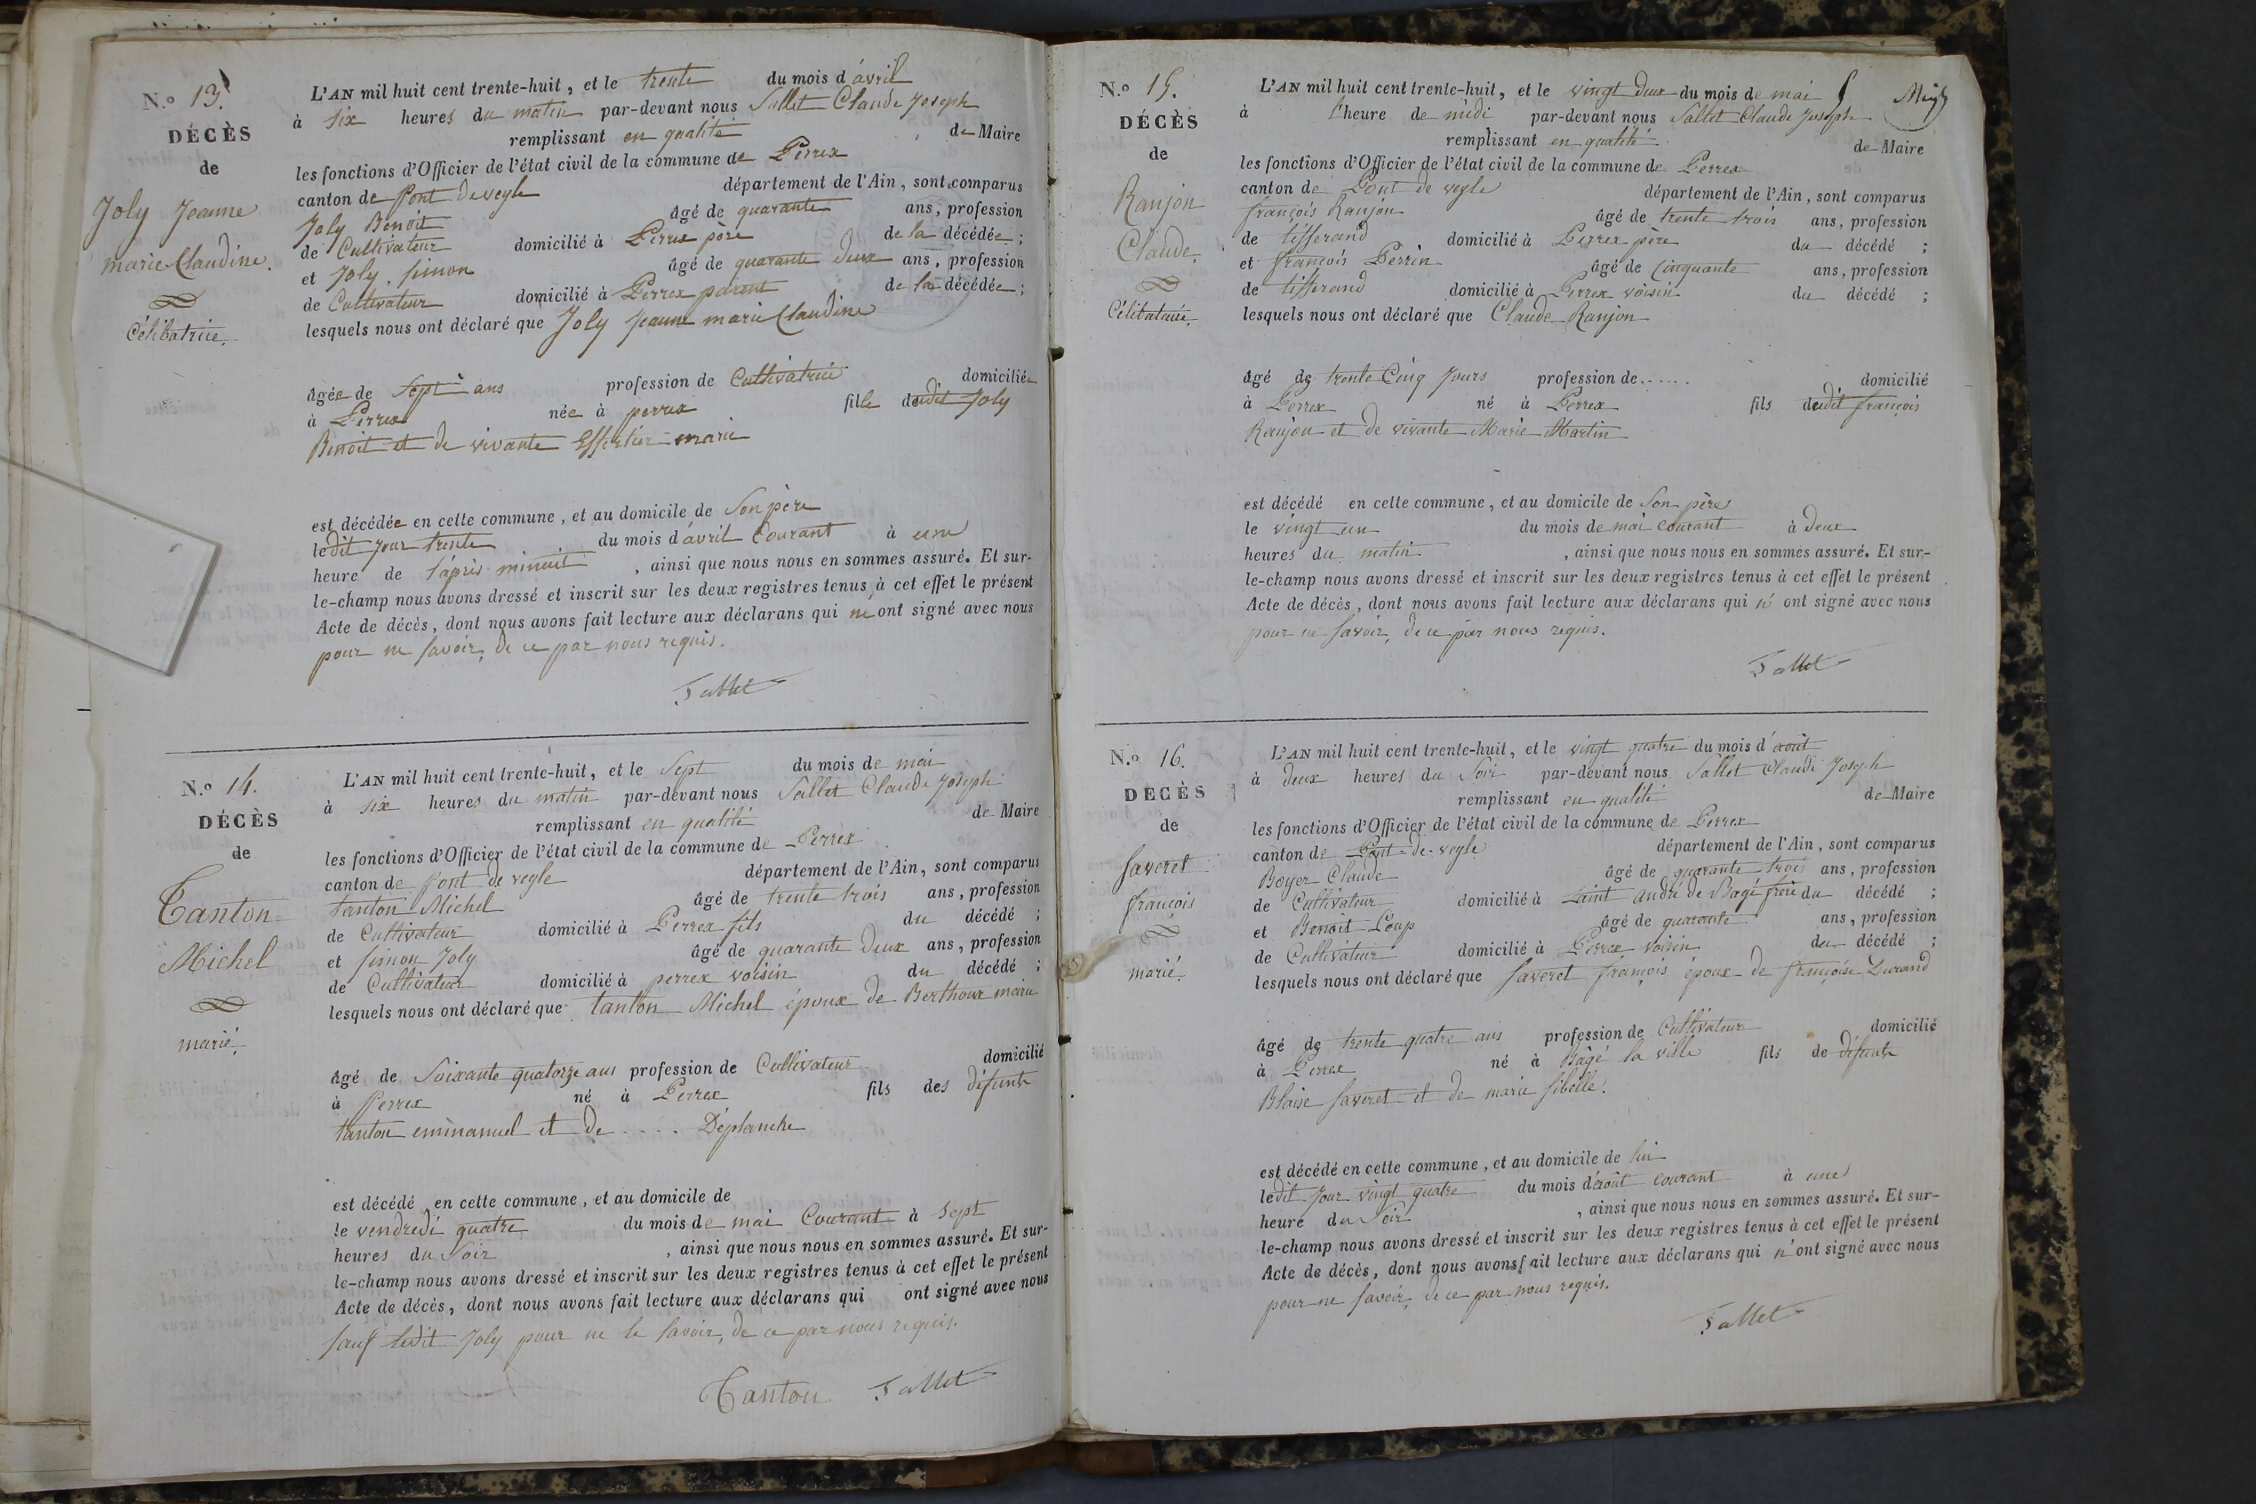 N.º 13.
DÉCÈS
de
Joly Jeanne
marie Claudine.
Célibatrice.
L'AN mil huit cent trente-huit, et le trente du mois d'avril
à six heures du matin par-devant nous Sallet Claude Joseph
remplissant en qualité de Maire
les fonctions d'Officier de l'état civil de la commune de Perrex
canton de Pont de veyle département de l'Ain, sont comparus
Joly Benoit âgé de quarante ans, profession
de Cultivateur domicilié à Perrex père de la décédée;
et Joly simon âgé de quarante deux ans, profession
de Cultivateur domicilié à Perrex parent de la décédée;
lesquels nous ont déclaré que Joly Jeanne marie Claudine
âgée de sept ans profession de Cultivatrice domiciliée
à Perrex née à perrex fille dudit Joly
Benoit et de vivante Effertier marie
est décédée en cette commune, et au domicile de son père
ledit jour trente du mois d'avril Courant à une
heure de l'après minuit, ainsi que nous nous en sommes assuré. Et sur-
le-champ nous avons dressé et inscrit sur les deux registres tenus à cet effet le présent
Acte de décès, dont nous avons fait lecture aux déclarans qui ne ont signé avec nous
pour ne savoir, de ce par nous requis.
Sallet
N.º 14.
DÉCÈS
de
Tanton
Michel
marié.
L'AN mil huit cent trente-huit, et le sept du mois de mai
à six heures du matin par-devant nous Sallet Claude Joseph
remplissant en qualité de Maire
les fonctions d'Officier de l'état civil de la commune de Perrex
canton de Pont de veyle département de l'Ain, sont comparus
tanton Michel âgé de trente trois ans, profession
de Cultivateur domicilié à Perrex fils du décédé;
et simon Joly âgé de quarante deux ans, profession
de Cultivateur domicilié à perrex voisin du décédé;
lesquels nous ont déclaré que tanton Michel époux de Berthoux marie
âgé de soixante quatorze ans profession de Cultivateur domicilié
à Perrex né à Perrex fils des défunts
tanton emmanuel et de .... Déplanche
est décédé en cette commune, et au domicile de
le vendredi quatre du mois de mai Courant à sept
heures du soir, ainsi que nous nous en sommes assuré. Et sur-
le-champ nous avons dressé et inscrit sur les deux registres tenus à cet effet le présent
Acte de décès, dont nous avons fait lecture aux déclarans qui ont signé avec nous
sauf ledit Joly pour ne le savoir, de ce par nous requis.
Tanton Sallet
N.º 15.
DÉCÈS
de
Ranjon
Claude.
Célibataire.
L'AN mil huit cent trente-huit, et le vingt deux du mois de mai
à l'heure de midi par-devant nous Sallet Claude Joseph
remplissant en qualité de Maire
les fonctions d'Officier de l'état civil de la commune de Perrex
canton de Pont de veyle département de l'Ain, sont comparus
françois Ranjon âgé de trente trois ans, profession
de tisserand domicilié à Perrex père du décédé;
et françois Perrin âgé de Cinquante ans, profession
de tisserand domicilié à Perrex voisin du décédé;
lesquels nous ont déclaré que Claude Ranjon
âgé de trente Cinq Jours profession de...... domicilié
à Perrex né à Perrex fils dudit françois
Ranjon et de vivante Marie Martin
est décédé en cette commune, et au domicile de son père
le vingt un du mois de mai courant à deux
heures du matin, ainsi que nous nous en sommes assuré. Et sur-
le-champ nous avons dressé et inscrit sur les deux registres tenus à cet effet le présent
Acte de décès, dont nous avons fait lecture aux déclarans qui n' ont signé avec nous
pour ne savoir, de ce par nous requis.
Sallet
N.º 16.
DÉCÈS
de
saveret
françois
marié.
L'AN mil huit cent trente-huit, et le vingt quatre du mois d'août
à deux heures du soir par-devant nous Sallet Claude Joseph
remplissant en qualité de Maire
les fonctions d'Officier de l'état civil de la commune de Perrex
canton de Pont-de-veyle département de l'Ain, sont comparus
Boyer Claude âgé de quarante trois ans, profession
de Cultivateur domicilié à saint andré de Bagé frère du décédé;
et Benoit Loup âgé de quarante ans, profession
de Cultivateur domicilié à Perrex voisin du décédé;
lesquels nous ont déclaré que saveret françois époux de françoise Durand
âgé de trente quatre ans profession de Cultivateur domicilié
à Perrex né à Bagé la ville fils de défunts
Blaise saveret et de marie sibelle.
est décédé en cette commune, et au domicile de lui
ledit jour vingt quatre du mois d'août courant à une
heure du soir, ainsi que nous nous en sommes assuré. Et sur-
le-champ nous avons dressé et inscrit sur les deux registres tenus à cet effet le présent
Acte de décès, dont nous avons fait lecture aux déclarans qui n'ont signé avec nous
pour ne savoir, de ce par nous requis.
Sallet